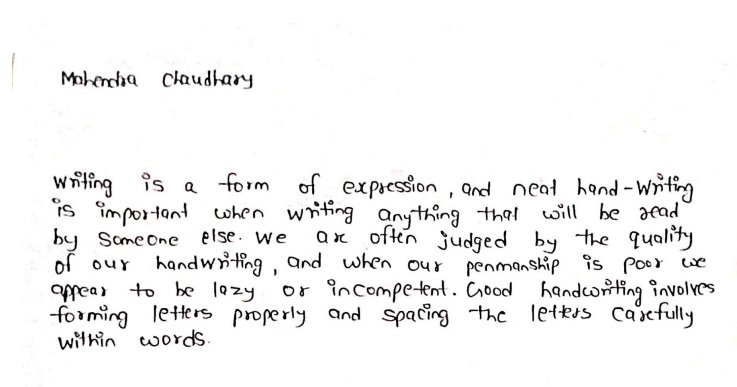 Mahendra Chaudhary
Writing is a form of expression, and neat hand-Writing
is important when writing anything that will be read
by Someone else. We are often judged by the quality
of our handwriting, and when our penmanship is poor we
appear to be lazy or incompetent. Good handwriting involves
forming letters properly and spacing the letters carefully
within words.